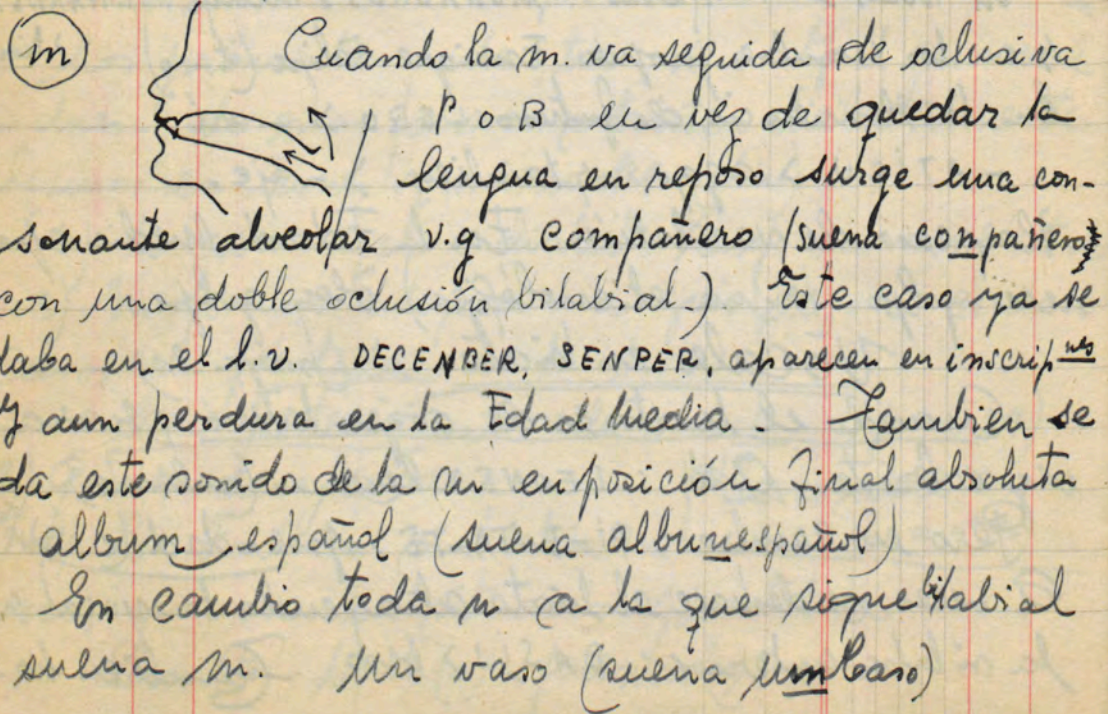 m Cuando la m. va seguida de oclusiva
P o B en vez de quedar la
lengua en reposo surge una con-
sonante alveolar v.g compañero (suena conpañero
con una doble oclusión bilabial.) Este caso ya se
daba en el l.v. DECENBER, SENPER, aparecen en inscripnes
y aun perdura en la Edad Media. Tambien se
da este sonido de la m en posición final absoluta
album español (suena albunespañol)
En cambio toda n a la que sigue bilabial
suena m. Un vaso (suena umbaso)